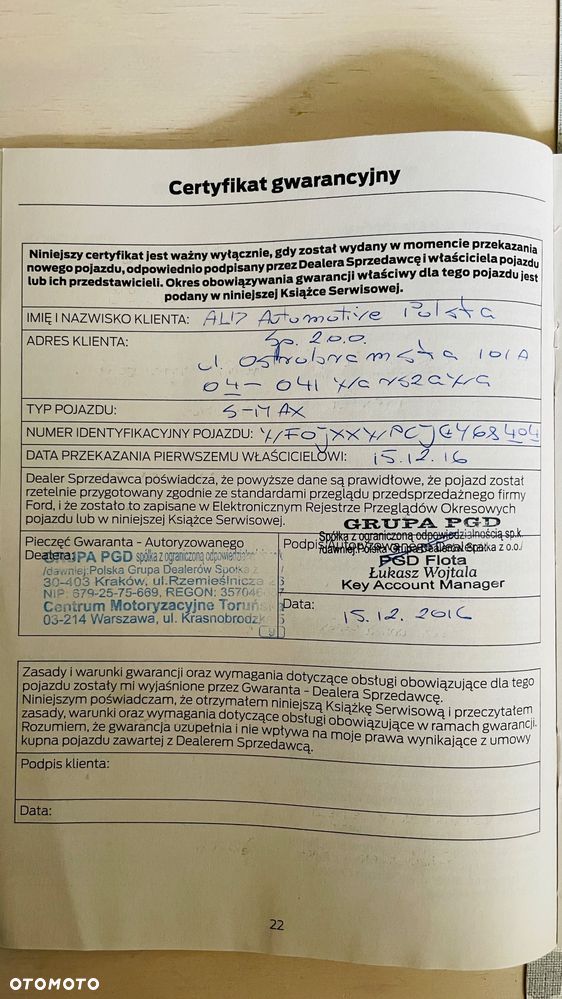 Certyfikat gwarancyjny
Niniejszy certyfikat jest ważny wyłącznie, gdy został wydany w momencie przekazania
nowego pojazdu, odpowiednio podpisany przez Dealera Sprzedawcę i właściciela pojazdu
lub ich przedstawicieli. Okres obowiązywania gwarancji właściwy dla tego pojazdu jest
podany w niniejszej Książce Serwisowej.
IMIĘ I NAZWISKO KLIENTA: ALD Automotive Polska
Sp. z o.o.
ADRES KLIENTA: ul. Ostrobramska 101A
04-041 Warszawa
TYP POJAZDU: S-MAX
NUMER IDENTYFIKACYJNY POJAZDU: WF0JXXWPCJGY68404
DATA PRZEKAZANIA PIERWSZEMU WŁAŚCICIELOWI: 15.12.16
Dealer Sprzedawca poświadcza, że powyższe dane są prawidłowe, że pojazd został
rzetelnie przygotowany zgodnie ze standardami przeglądu przedsprzedażnego firmy
Ford, i że zostało to zapisane w Elektronicznym Rejestrze Przeglądów Okresowych
pojazdu lub w niniejszej Książce Serwisowej.
Pieczęć Gwaranta - Autoryzowanego
Dealera:
GRUPA PGD spółka z ograniczoną odpowiedzialnością
/dawniej:Polska Grupa Dealerów Spółka z
30-403 Kraków, ul.Rzemieślnicza 26
NIP: 679-25-75-669, REGON:
Centrum Motoryzacyjne Toruńska
03-214 Warszawa, ul. Krasnobrodzka 5
GRUPA PGD
Spółka z ograniczoną odpowiedzialnością sp.k.
/dawniej:Polska Grupa Dealerów Spółka z o.o./
PGD Flota
Łukasz Wojtala
Key Account Manager
Data: 15.12.2016
Zasady i warunki gwarancji oraz wymagania dotyczące obsługi obowiązujące dla tego
pojazdu zostały mi wyjaśnione przez Gwaranta - Dealera Sprzedawcę.
Niniejszym poświadczam, że otrzymałem niniejszą Książkę Serwisową i przeczytałem
zasady, warunki oraz wymagania dotyczące obsługi obowiązujące w ramach gwarancji.
Rozumiem, że gwarancja uzupełnia i nie wpływa na moje prawa wynikające z umowy
kupna pojazdu zawartej z Dealerem Sprzedawcą.
Podpis klienta:
Data:
22
OTOMOTO